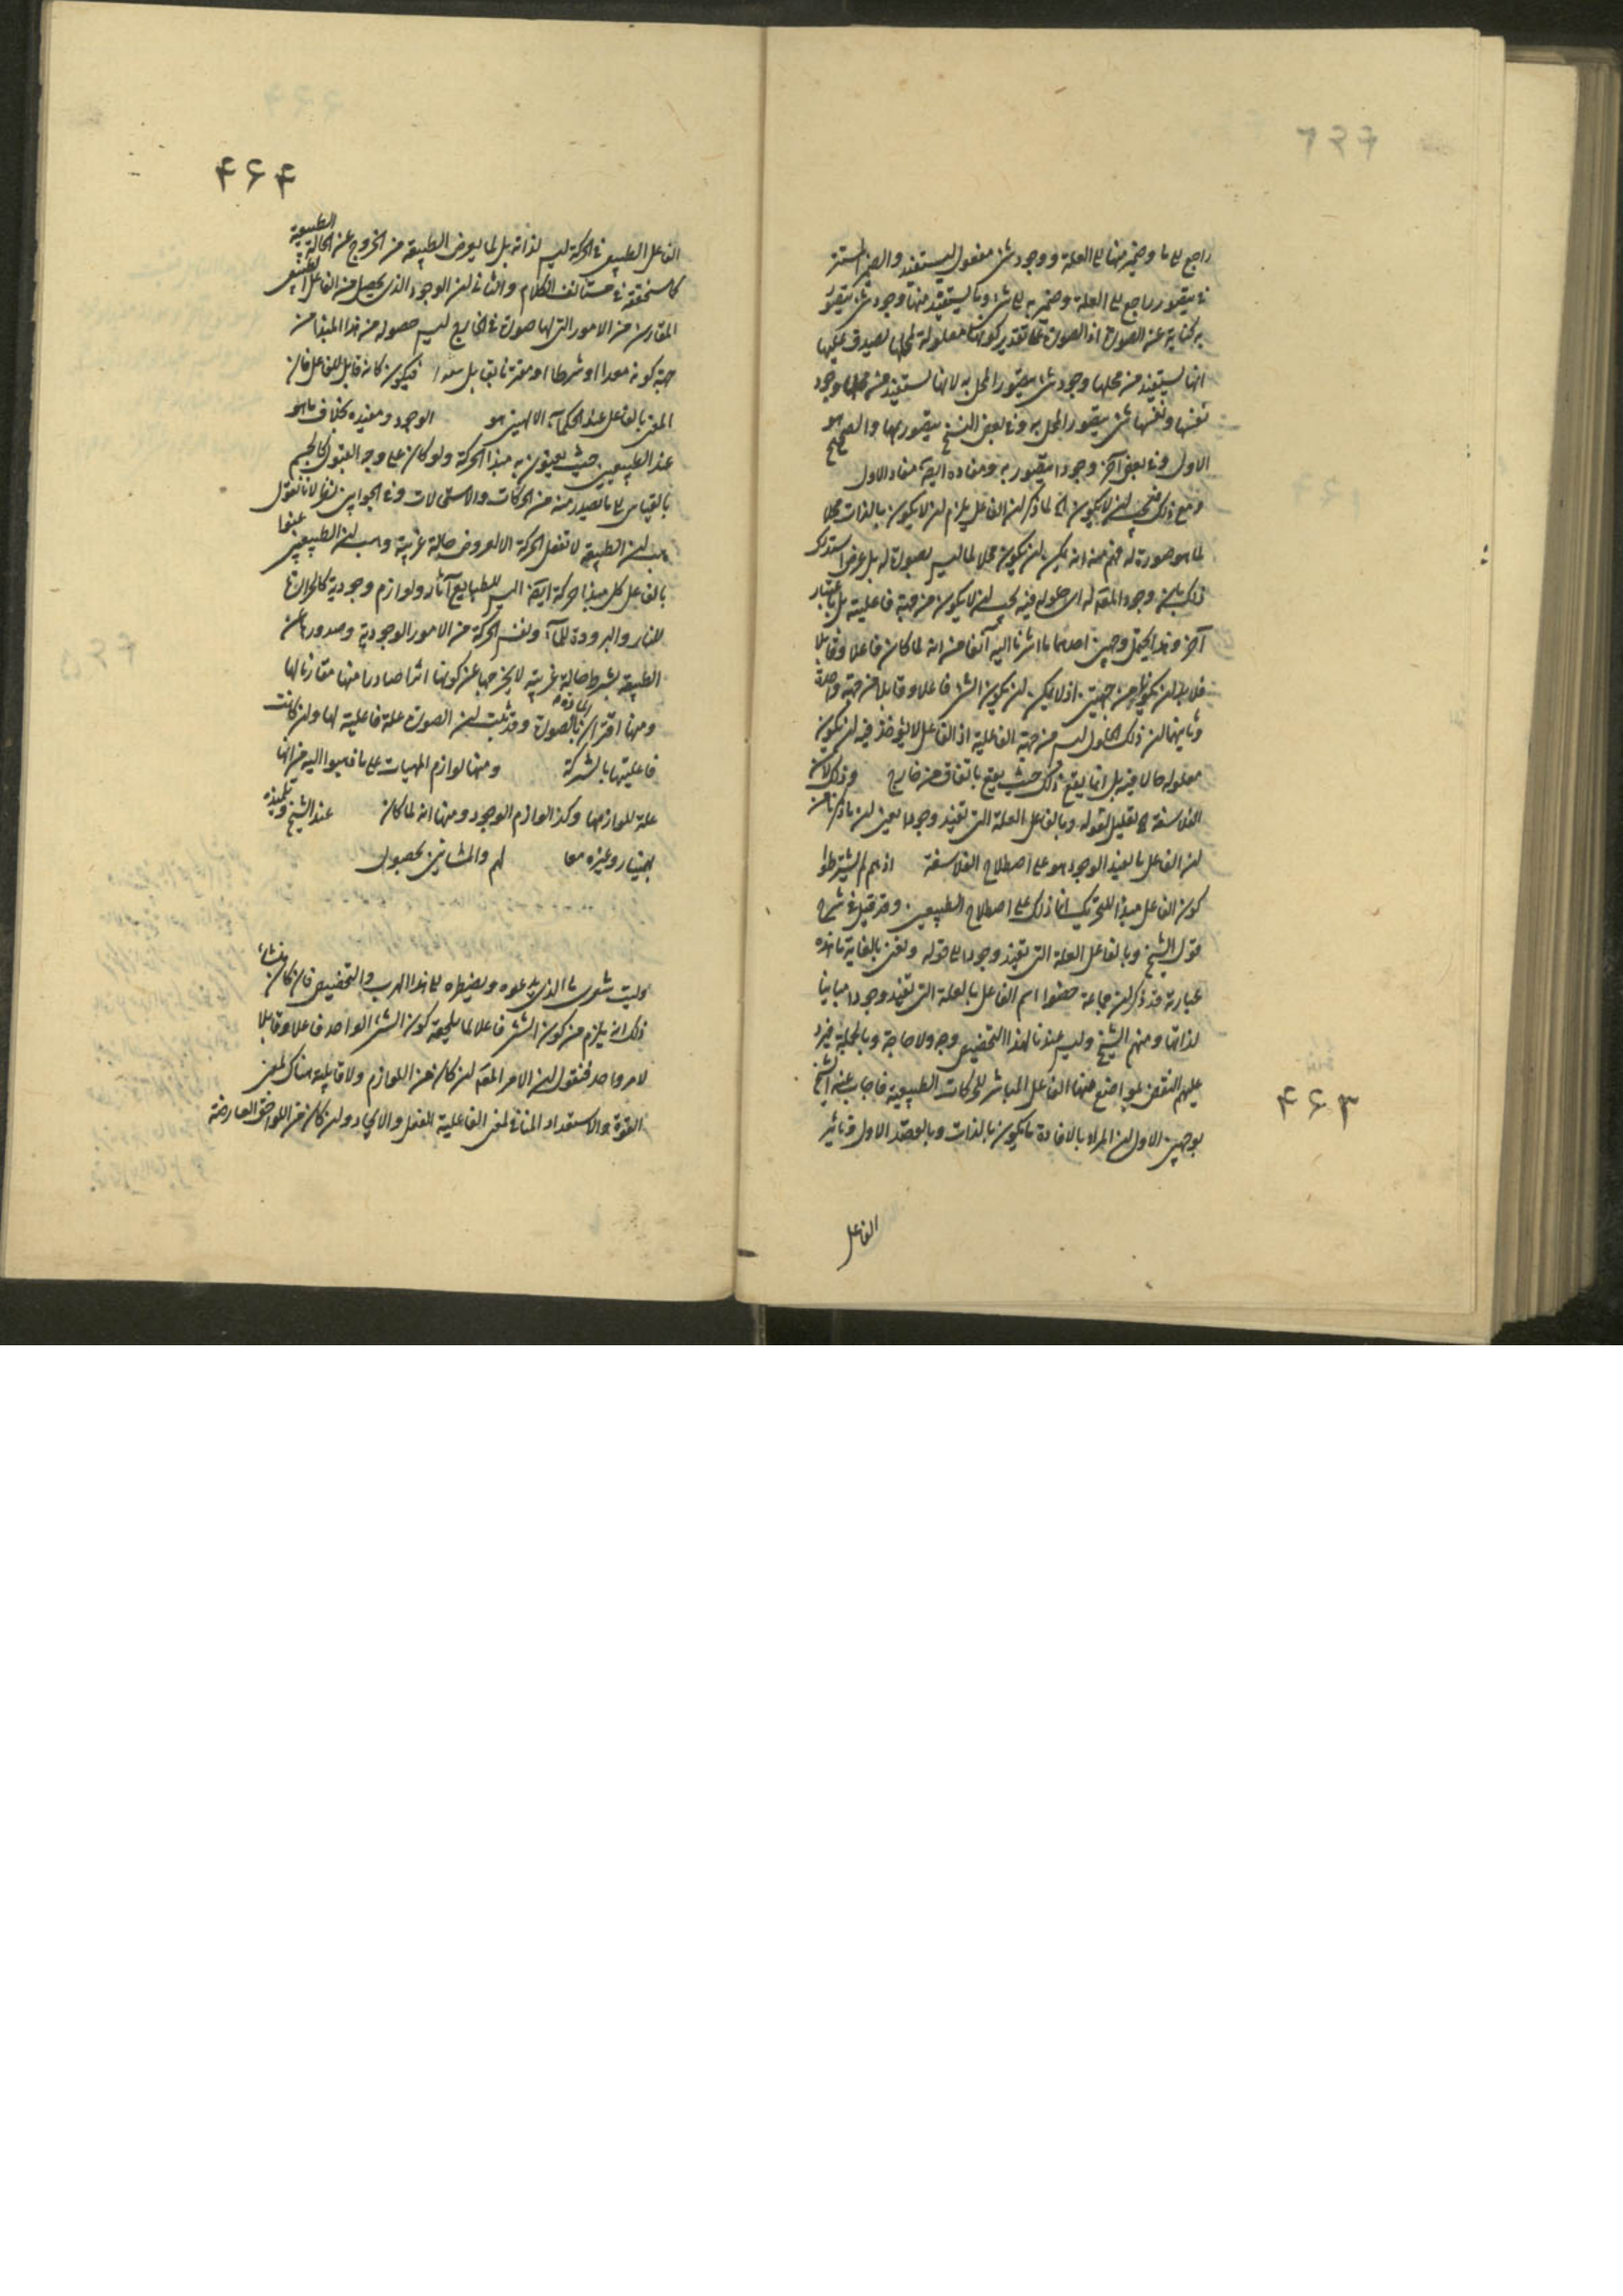 راجع الى ما وضمير منها الى العلة ووجود شئ مفعول ليستفيد والضمير المستتر
في يتصور راجع الى العلة وضمير به الى شئ وما يستفيد منها وجود شئ يتصور
به كناية عن الصورة اذ الصورة على تقدير كونها معلولة لمحلها يصدق عليها
انها يستفيد من محلها وجود شئ يتصور المحل به لانها تستفيد من محلها وجود
نفسها ونفسها شئ يتصور المحل به وفي بعض النسخ يتصور بها والصحيح هو
الاول وفي بعض آخر وجودا يتصور به ومفاده ايضا مفاد الاول
ومع ذلك فيجب ان لا يكون الخ لما ذكر ان الفاعل يلزم ان لا يكون بالذات محلا
لما هو صورة له فهم منه انه يمكن ان يكون محلا لما ليس بصورة له بل عرض استدرك
ذلك بان وجود المقبول له اى حلوله فيه يجب ان لا يكون من جهة فاعليته بل باعتبار
آخر وهذا يحتمل وجهين احدهما ما اشرنا اليه آنفا من انه لما كان فاعلا وقابلا
فلا بد ان يكون من جهتين اذ لا يمكن ان يكون الشئ فاعلا وقابلا من جهة واحدة
وثانيهما ان ذلك الحلول ليس من جهة الفاعلية اذ الفاعل لا يؤخذ فيه ان يكون
معلوله حالا فيه بل انما يقع ذلك حيث يقع باتفاق من خارج وذلك لان
الفلاسفة الخ تعليل لقوله وبالفاعل العلة التى تفيد وجودا يعنى ان ما ذكرنا من
ان الفاعل ما يفيد الوجود هو على اصطلاح الفلاسفة اذ هم لم يشترطوا
كون الفاعل مبدأ للتحريك انما ذلك على اصطلاح الطبيعيين وقد قيل في شرح
قول الشيخ وبالفاعل العلة التى تفيد وجودا الى قوله ونعنى بالغاية ما هذه
عبارته قد ذكر ان جماعة خصوا اسم الفاعل بالعلة التى تفيد وجودا مباينا
لذاتها ومنهم الشيخ وليس عندنا لهذا التخصيص وجه ولا حاجة وبالجملة فيرد
عليهم النقض بمواضع منها الفاعل المباشر للحركات الطبيعية فاجاب عنه الشيخ
بوجهين الاول ان المراد بالافادة ما يكون بالذات وبالقصد الاول وتأثير
الفاعل
۴۶۳
۴۶۴
الفاعل الطبيعى في الحركة ليس لذاته بل لما يعرض الطبيعة من الخروج عن الحالة الطبيعية
كما سنحققه في مستأنف الكلام والثانى ان الوجود الذى يحصل من الفاعل الطبيعى
المقارن من الامور التى لها صورة في الخارج ليس حصوله من هذا المبدأ من
جهة كونه معدا او شرطا او مقترنا بقابل معد فيكون كانه قابل لا فاعل فان
المعنى بالفاعل عند الحكماء الالهيين هو الوجود ومفيده بخلاف ما هو
عند الطبيعيين حيث يعنون به مبدأ الحركة ولو كان على وجه القبول كالجسم
بالقياس الى ما يصدر منه من الحركات والاستحالات وفي الجوابين نظر لانا نقول
هب ان الطبيعة لا تفعل الحركة الا لعروض حالة غريبة وهب ان الطبيعيين عنوا
بالفاعل كل مبدأ حركة ايضا اليس للطبايع آثار ولوازم وجودية كالحرارة
للنار والبرودة للماء ونفس الحركة من الامور الوجودية وصدورها عن
الطبيعة بشرط حالة غريبة لا يخرجها عن كونها اثرا صادرا منها مقارنا لها
ومنها اقتران المادة بالصورة وقد ثبت ان الصورة علة فاعلية لها وان كانت
فاعليتها بالشركة ومنها لوازم المهيات على ما ذهبوا اليه من انها
علة للوازمها وكذا لوازم الوجود ومنها انه لما كان عند الشيخ وتلميذه
بهمنيار وغيره معا لهم والمشائين بحصول
وليت شعرى ما الذى يدعوه ويضطره الى هذا الهرب والتخصيص فان كان منشاء
ذلك انه يلزم من كون الشئ فاعلا لما يلحقه كون الشئ الواحد فاعلا وقابلا
لامر واحد فنقول ان الامر المقبول ان كان من اللوازم ولا قابلية هناك بمعنى
القوة والاستعداد المنافى لمعنى الفاعلية الفعل والايجاد وان كان من اللواحق العارضة